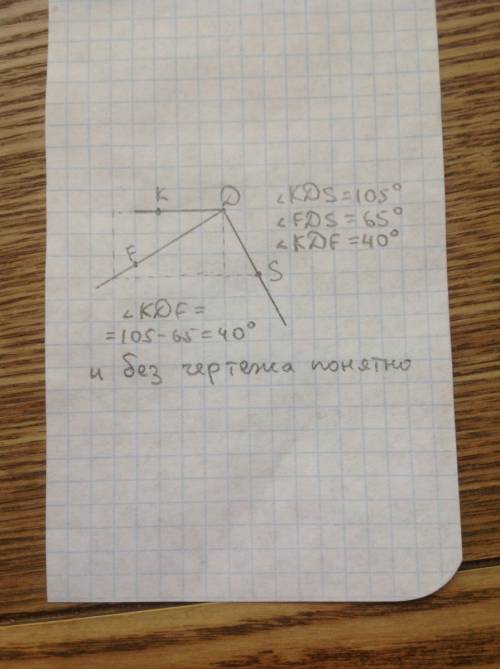 K D
∠KDS = 105°
∠FDS = 65°
∠KDF = 40°
F
S
∠KDF =
= 105 - 65 = 40°
и без чертежа понятно